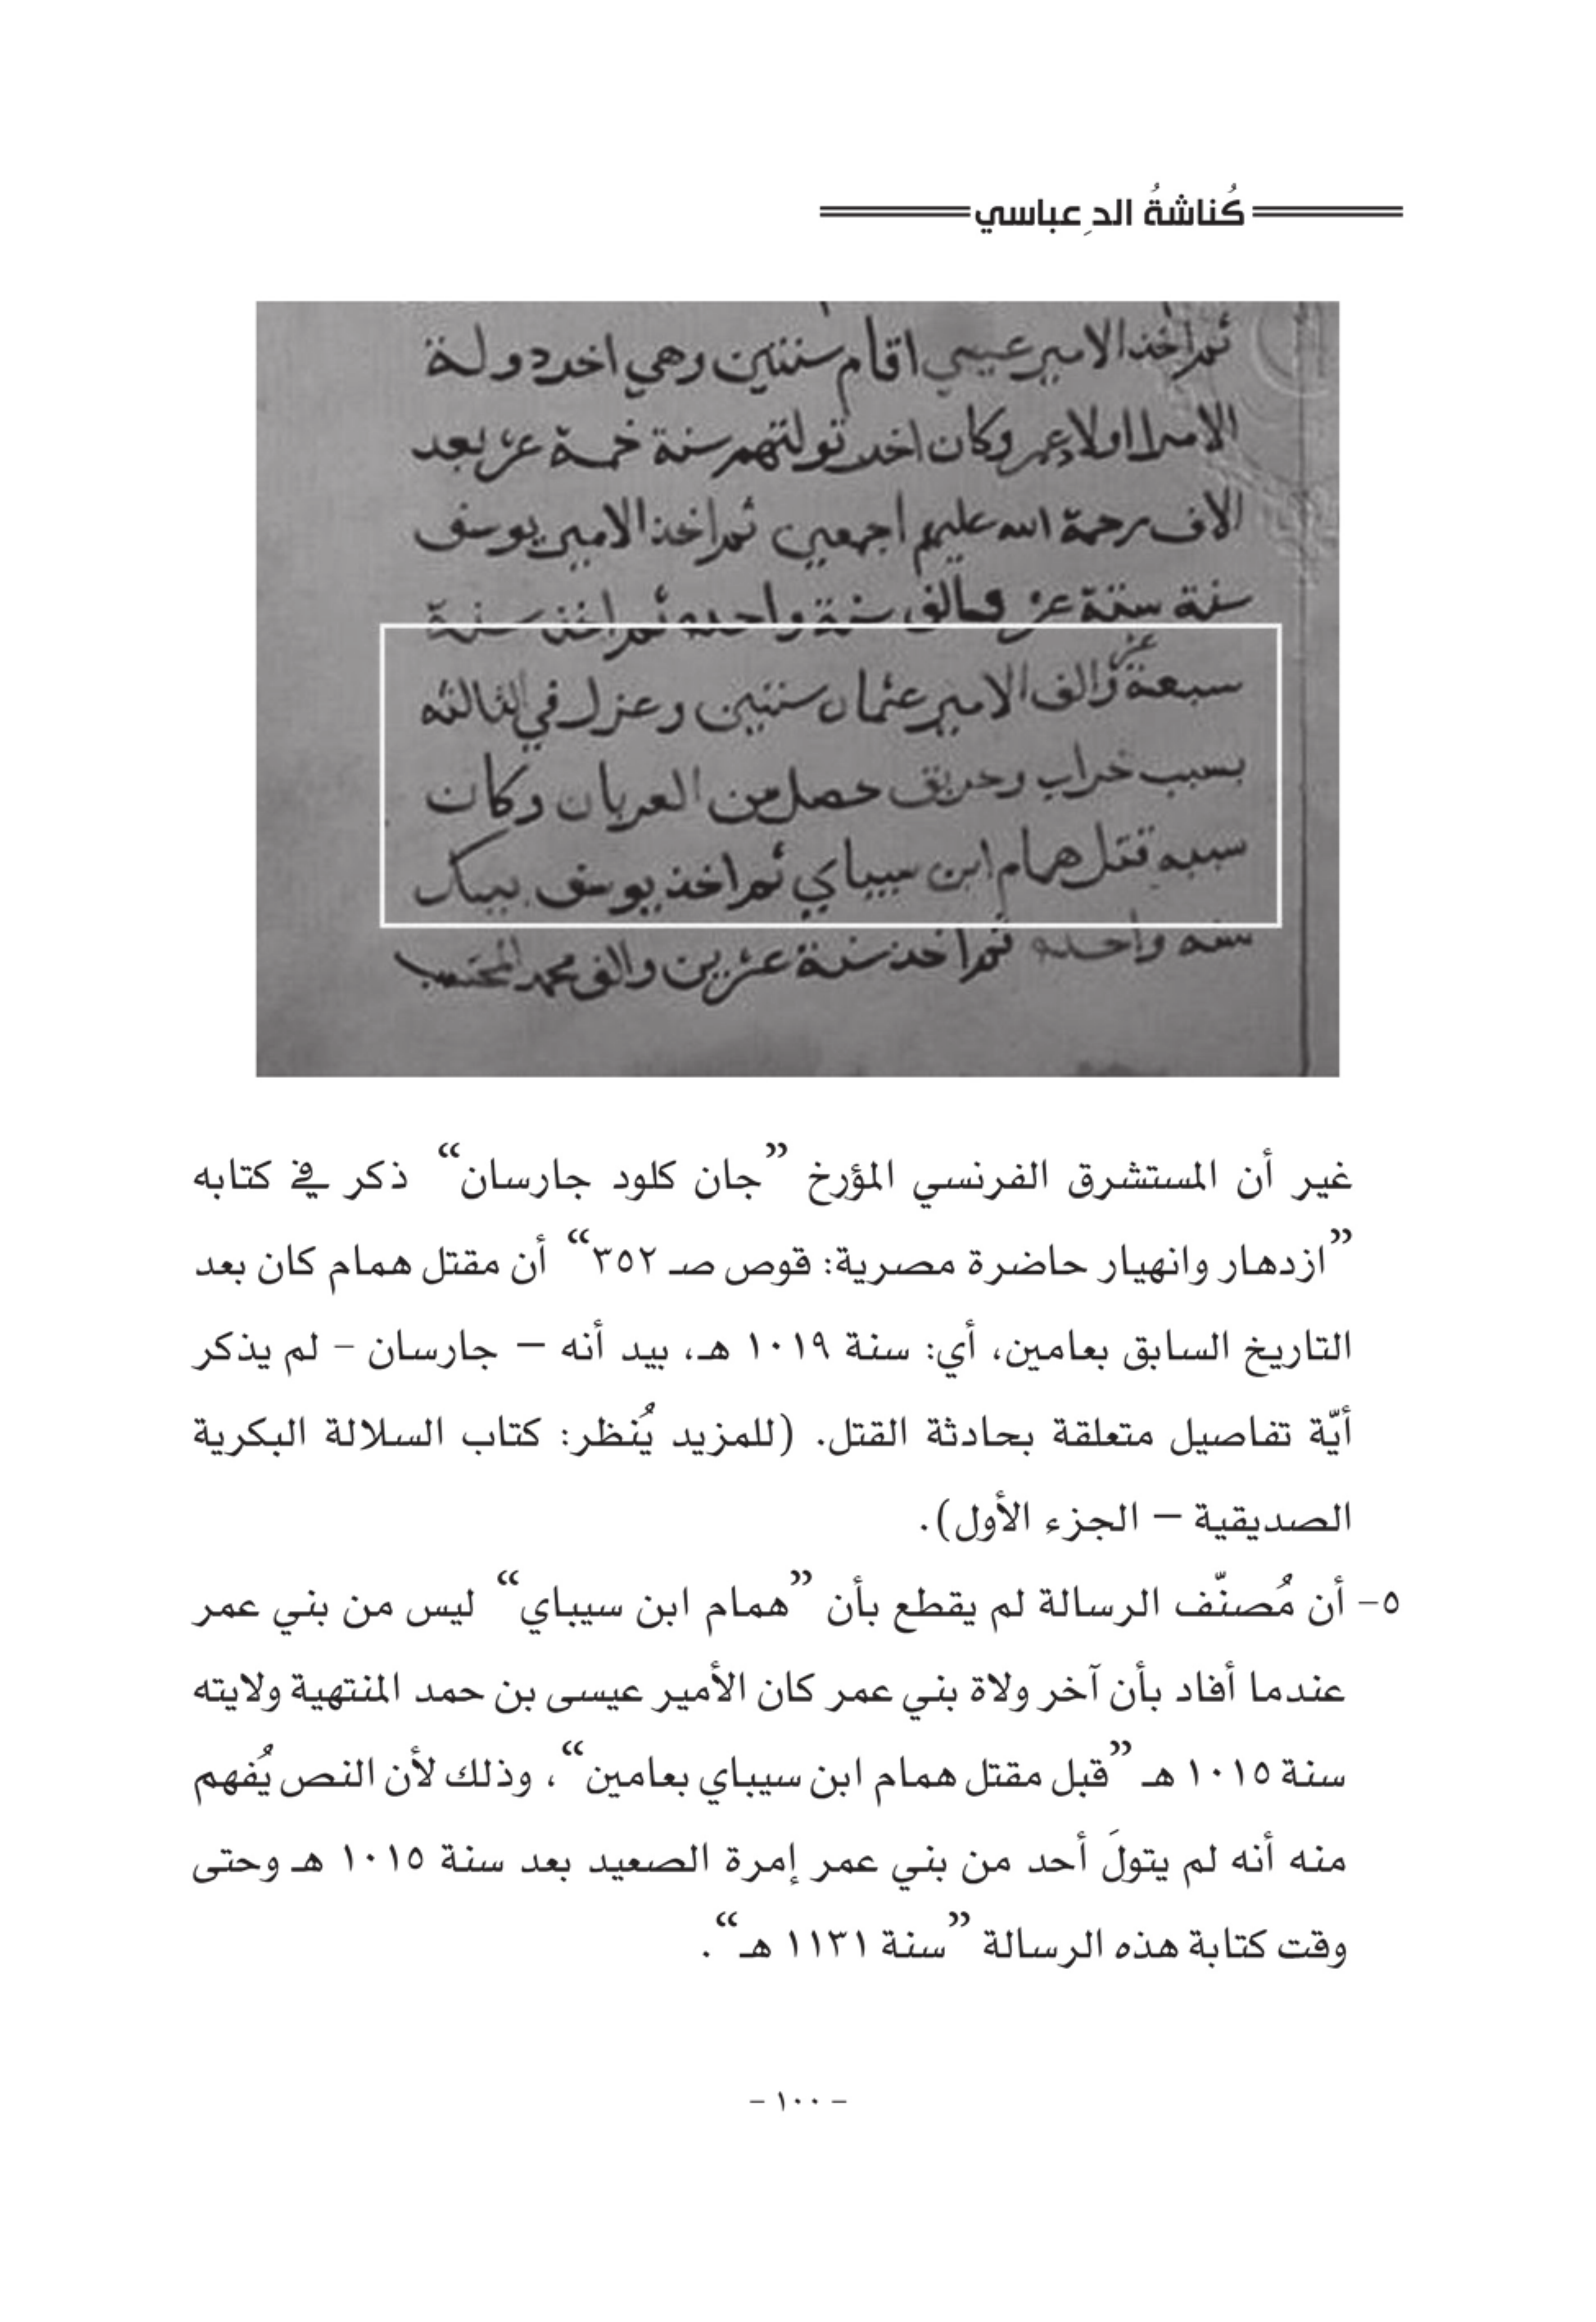 كُناشةُ الدِعباسي
ثم اخذ الامير عيسي اقام سنتين وهي اخر دولة
الامرا اولاد عمر وكان اخر تولتهم سنة خمسة عشر بعد
الالف رحمة الله عليهم اجمعين ثم اخذ الامير يوسف
سنة ستة عشر والف سنة واحده ثم اخذ سنة
سبعة عشر والف الامير عثمان سنتين وعزل في الثالثه
بسبب خراب وحريق حصل من العربان وكان
سببه قتل همام ابن سيباي ثم اخذ يوسف بيك
سنه واحده ثم اخذ سنة عشرين والف محمد المحتسب
غير أن المستشرق الفرنسي المؤرخ ”جان كلود جارسان“ ذكر في كتابه
”ازدهار وانهيار حاضرة مصرية: قوص صـ ٣٥٢“ أن مقتل همام كان بعد
التاريخ السابق بعامين، أي: سنة ١٠١٩ هـ، بيد أنه – جارسان – لم يذكر
أيّة تفاصيل متعلقة بحادثة القتل. (للمزيد يُنظر: كتاب السلالة البكرية
الصديقية – الجزء الأول).
٥- أن مُصنّف الرسالة لم يقطع بأن ”همام ابن سيباي“ ليس من بني عمر
عندما أفاد بأن آخر ولاة بني عمر كان الأمير عيسى بن حمد المنتهية ولايته
سنة ١٠١٥ هـ ”قبل مقتل همام ابن سيباي بعامين“، وذلك لأن النص يُفهم
منه أنه لم يتولَ أحد من بني عمر إمرة الصعيد بعد سنة ١٠١٥ هـ وحتى
وقت كتابة هذه الرسالة ”سنة ١١٣١ هـ“.
- ١٠٠ -